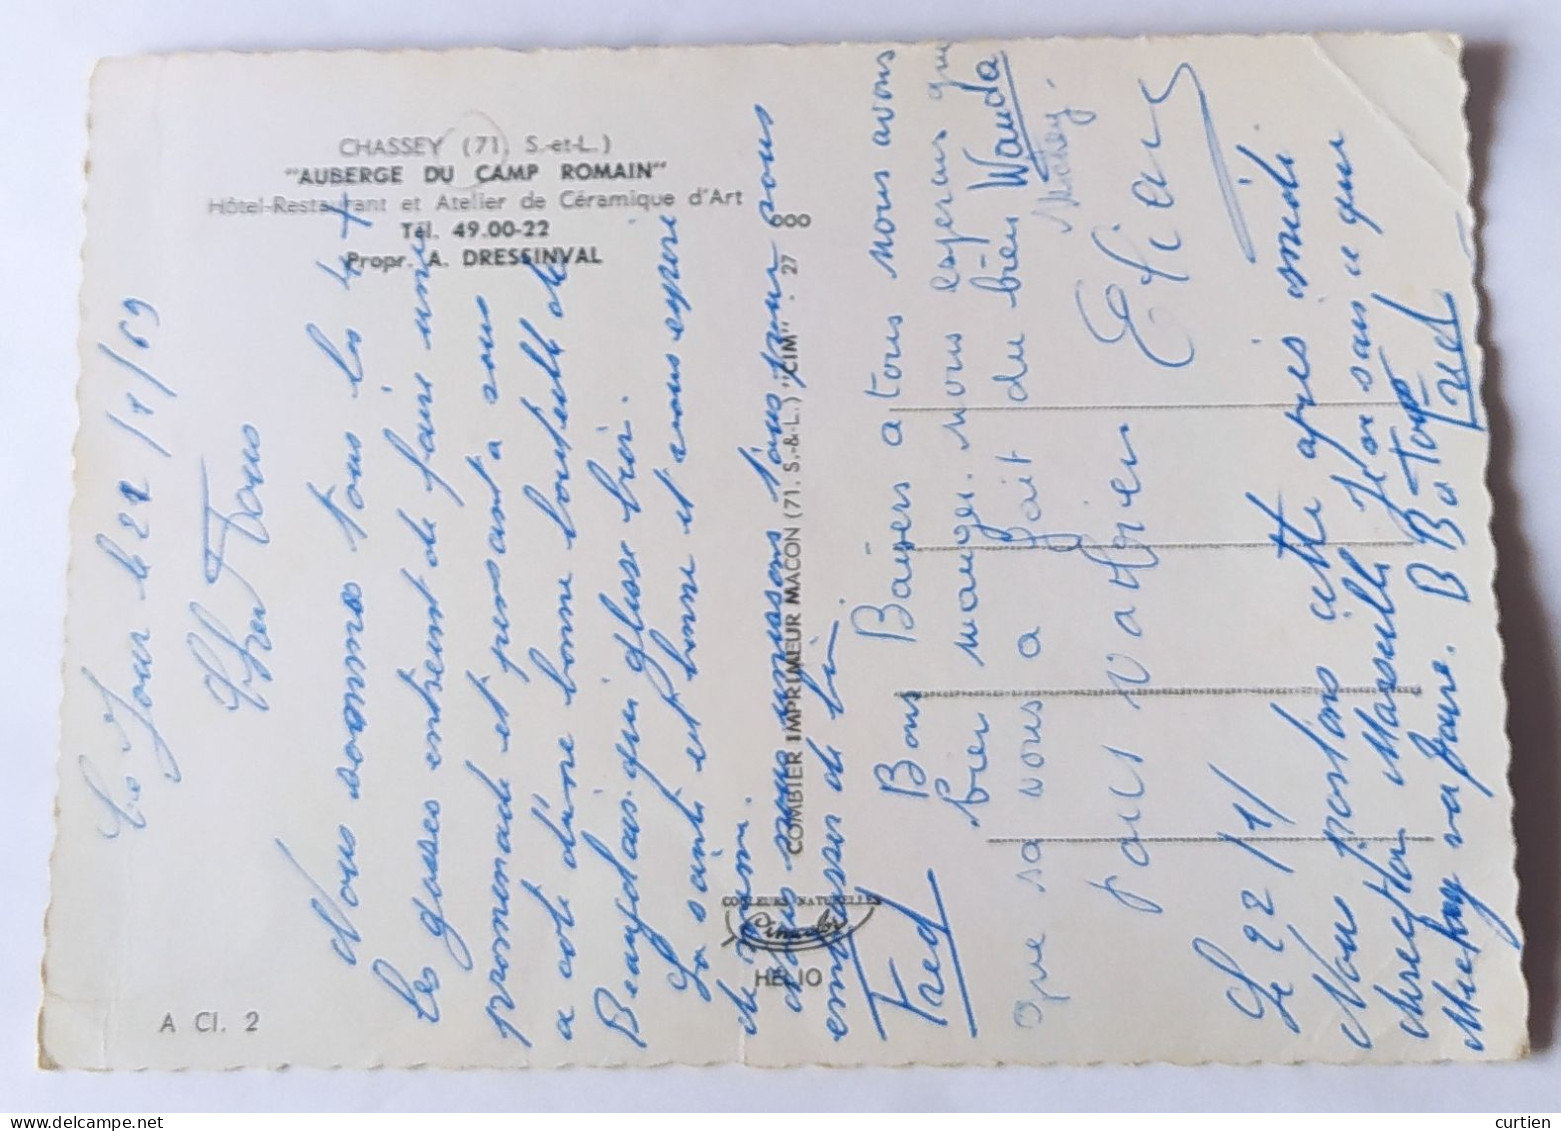 CHASSEY (71) S.-et-L.)
"AUBERGE DU CAMP ROMAIN"
Hôtel-Restaurant et Atelier de Céramique d'Art
Tél. 49.00-22
Propr. A. DRESSINVAL
COMBIER IMPRIMEUR MACON (71. S.-&-L.) "CIM" - 27 000
COULEURS NATURELLES
Cimcolor
HELIO
A Cl. 2
le 21/1/69
Cher Tous
Nous sommes tous les 4
les gosses de faire une
promenade et pensant a vous
a coté d'une bonne bouteille de
Beaujolais qui glisse bien.
La santé est bonne et nous espère
de même.
embrasser de loin.
Fred
Bons Baisers a tous nous avons
bien manger. nous esperons que
que sa vous a fait du bien Wanda
Mickey.
Le 22/1/
Nous partons cette après midi
direction Marseille
Mickey va faire. B B a Tous
Fred
curtien